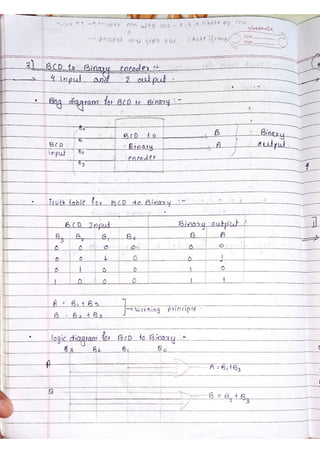 3] BCD to Binary encoder :-
→ 4 input and 2 output.
• Bog diagram for BCD to Binary :-
B₀
B₂
B₃
BCD input
BCD to Binary encoder
B
A
Binary output
• Truth table for BCD to Binary :-
BCD Input Binary output
B₃ B₂ B₁ B₀ B A
0 0 0 0 0 0
0 0 1 0 0 1
0 1 0 0 1 0
1 0 0 0 1 1
A = B₁ + B₃
B = B₂ + B₃
→ Working principle
• logic diagram for BCD to Binary :-
B₃ B₂ B₁ B₀
A
A = B₁ + B₃
B
B = B₂ + B₃